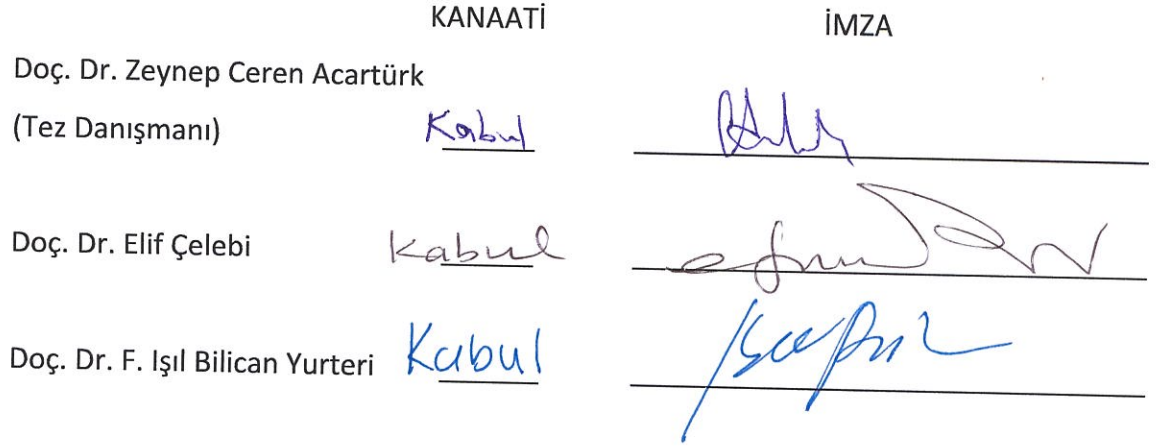 KANAATİ İMZA
Doç. Dr. Zeynep Ceren Acartürk
(Tez Danışmanı) Kabul
Doç. Dr. Elif Çelebi Kabul
Doç. Dr. F. Işıl Bilican Yurteri Kabul